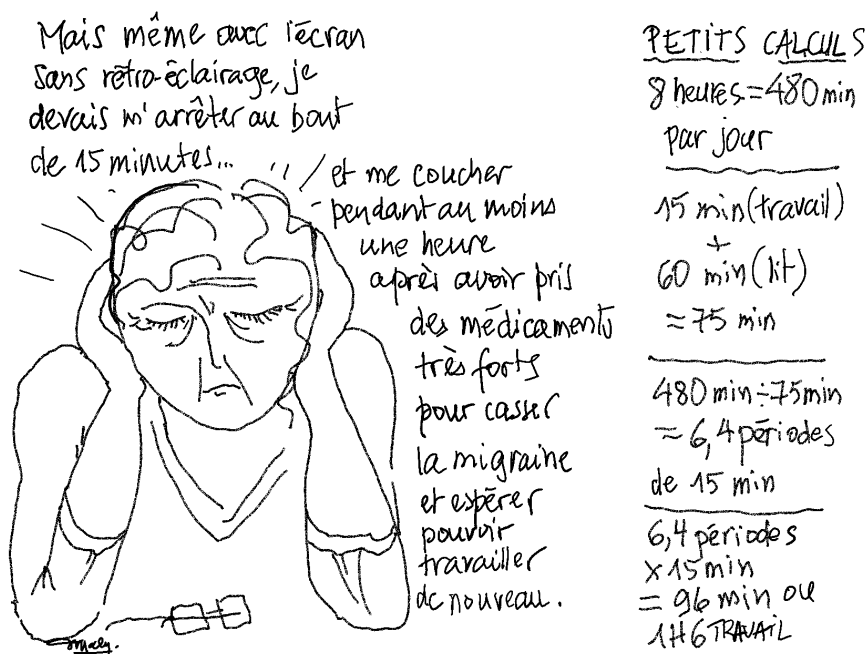 Mais même avec l'écran
sans rétro-éclairage, je
devais m'arrêter au bout
de 15 minutes...
et me coucher
pendant au moins
une heure
après avoir pris
des médicaments
très forts
pour casser
la migraine
et espérer
pouvoir
travailler
de nouveau.
PETITS CALCULS
8 heures = 480 min
par jour
15 min (travail)
+
60 min (lit)
= 75 min
480 min ÷ 75 min
= 6,4 périodes
de 15 min
6,4 périodes
x 15 min
= 96 min ou
1H6 TRAVAIL